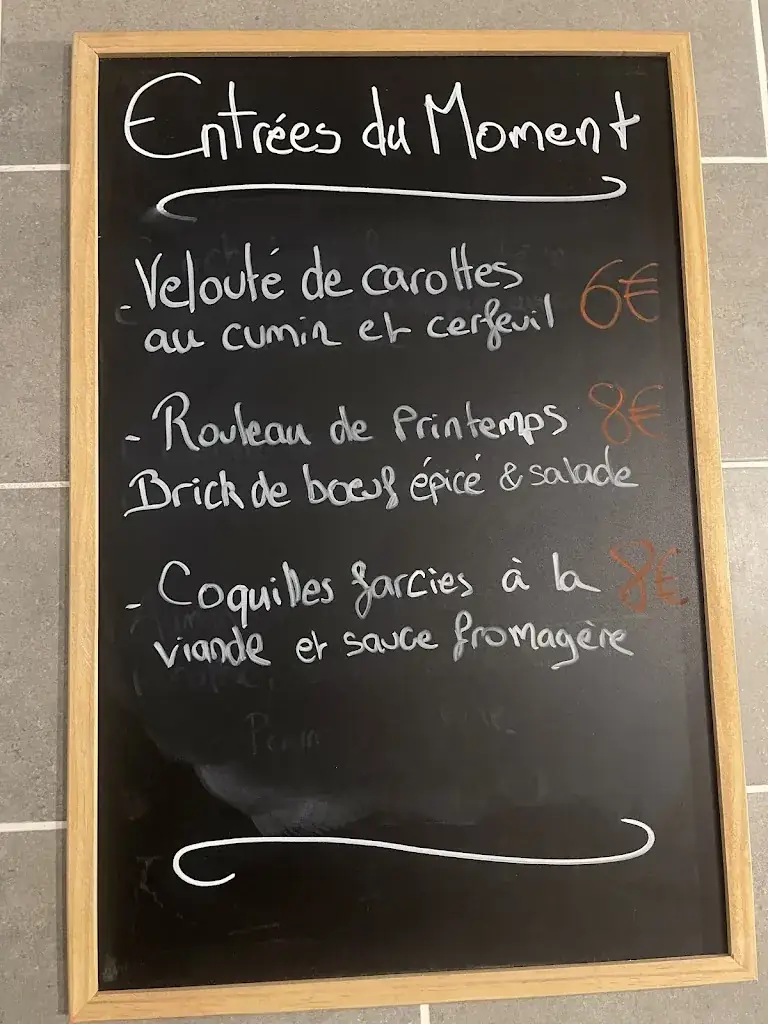 Entrées du Moment
- Velouté de carottes 6€
au cumin et cerfeuil
- Rouleau de Printemps 8€
Brick de bœuf épicé & salade
- Coquilles farcies à la 8€
viande et sauce fromagère